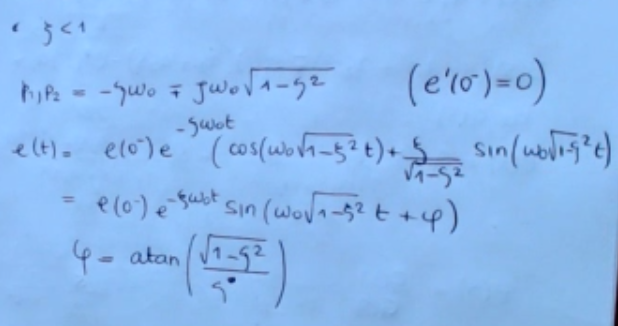 • ξ < 1
p₁,p₂ = -ξω₀ ∓ jω₀√(1-ξ²) (e'(0⁻)=0)
e(t) = e(0⁻) e^(-ξω₀t) (cos(ω₀√(1-ξ²) t) + ξ/√(1-ξ²) sin(ω₀√(1-ξ²) t)
= e(0⁻) e^(-ξω₀t) sin(ω₀√(1-ξ²) t + φ)
φ = atan(√(1-ξ²)/ξ)